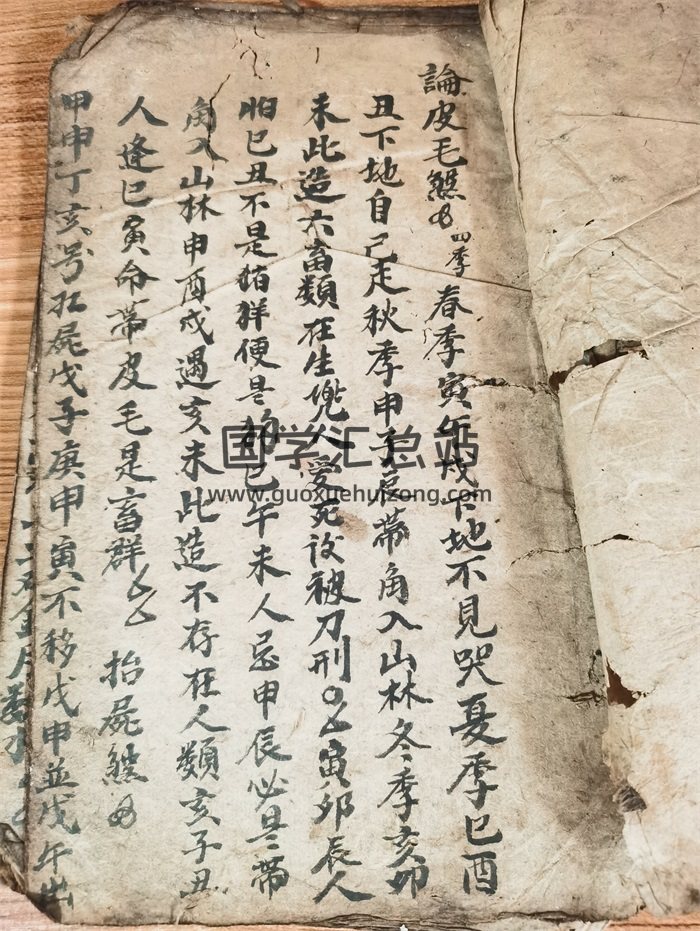 論皮毛 四季春季寅午戌下地不見哭夏季巳酉
丑下地自己走秋季申子辰帶角入山林冬季亥卯
未此造六畜類在生兜人愛死後被刀刑 寅卯辰人
怕巳丑不是猪羣便是 巳午未人忌申辰必是帶
角入山林申酉戌遇亥未此造不存在人類亥子丑
人逢巳寅命帶皮毛是畜群 抬屍
甲申丁亥号扛屍戊子庚申寅不移戊申並戊午出
国学汇总站
www.guoxuehuizong.com